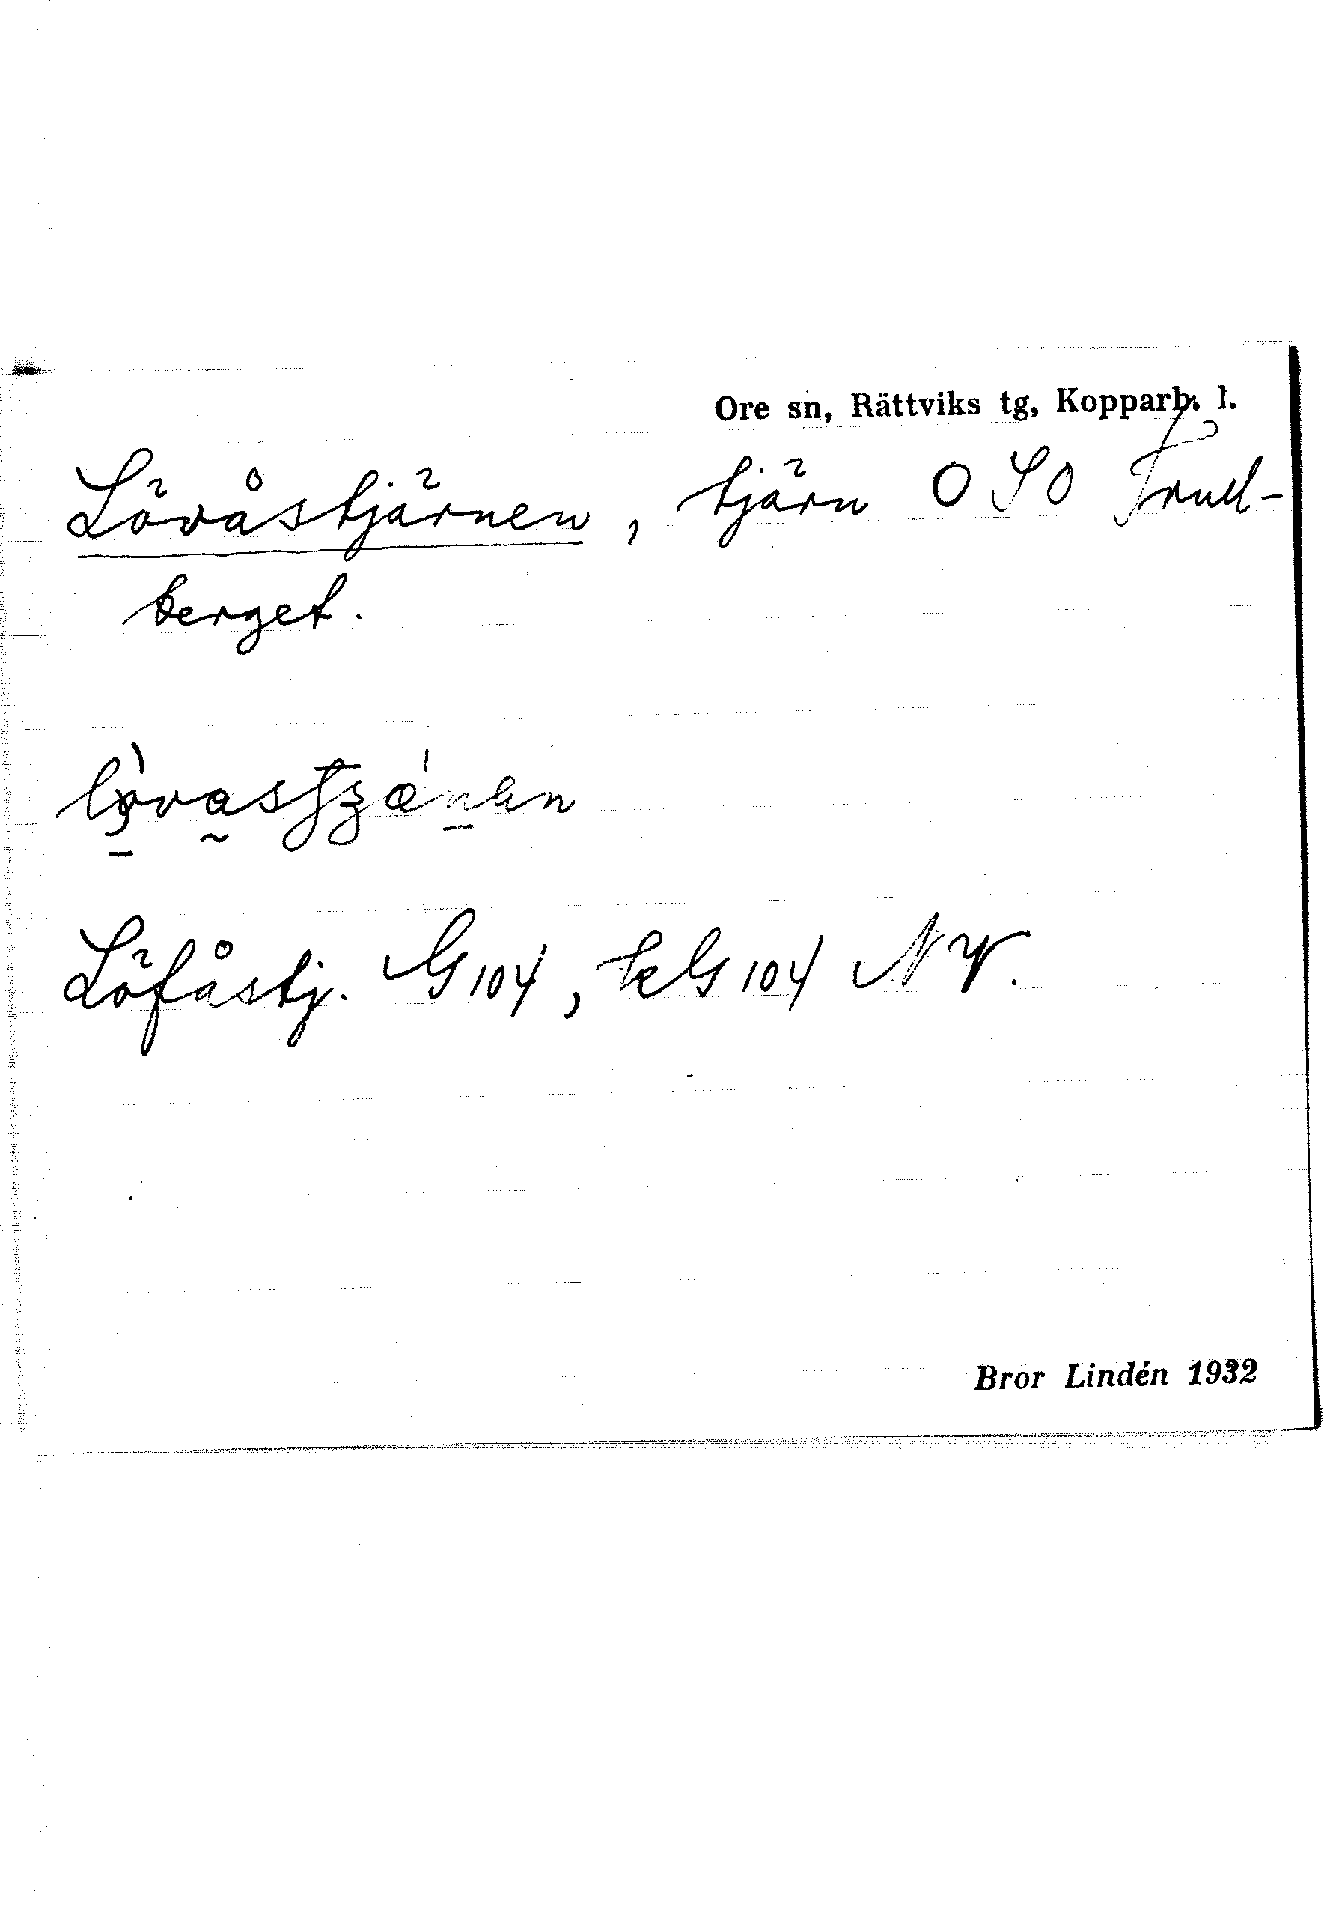 Ore sn, Rättviks tg, Kopparb. l.
Lövåstjärnen, tjärn O S O
berget.
Löfåstj. G104, kG104 NV.
Bror Lindén 1932